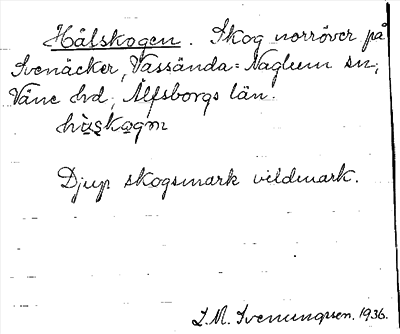 Hålskogen. Skog norröver på
Svenäcker, Vassända=Naglum sn,
Väne hd, Älfsborgs län.
hùs̥ko̲gm
Djup skogsmark vildmark.
L.M. Svenungsson. 1936.